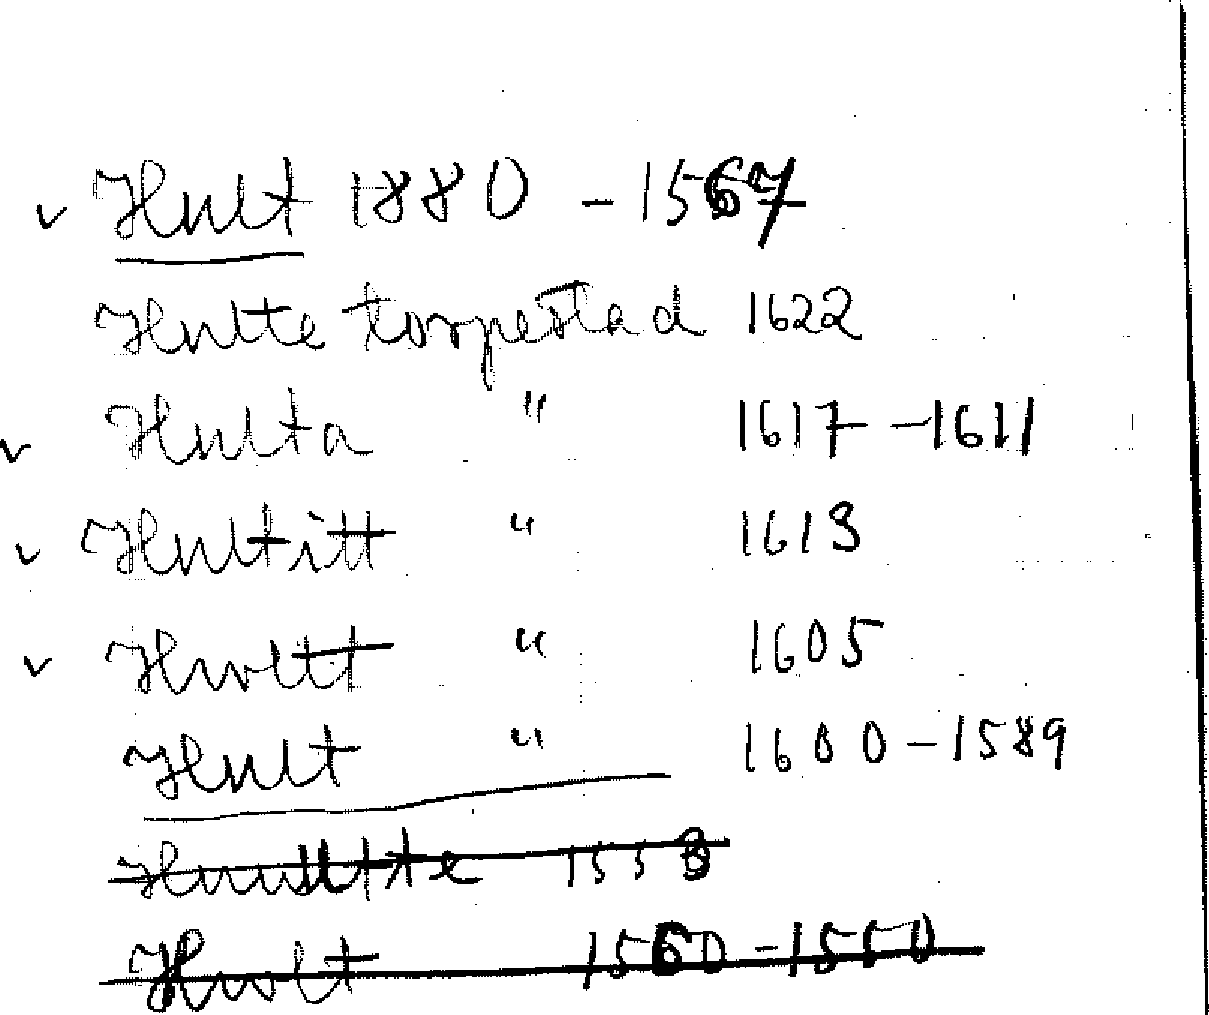 ✓ Hult 1880 - 1567
Hulte torpestad 1622
✓ Hulta " 1617 - 1611
✓ Hultitt " 1613
✓ Hwltt " 1605
Hult " 1600 - 1589
1553
Hwlt 1560 - 1550